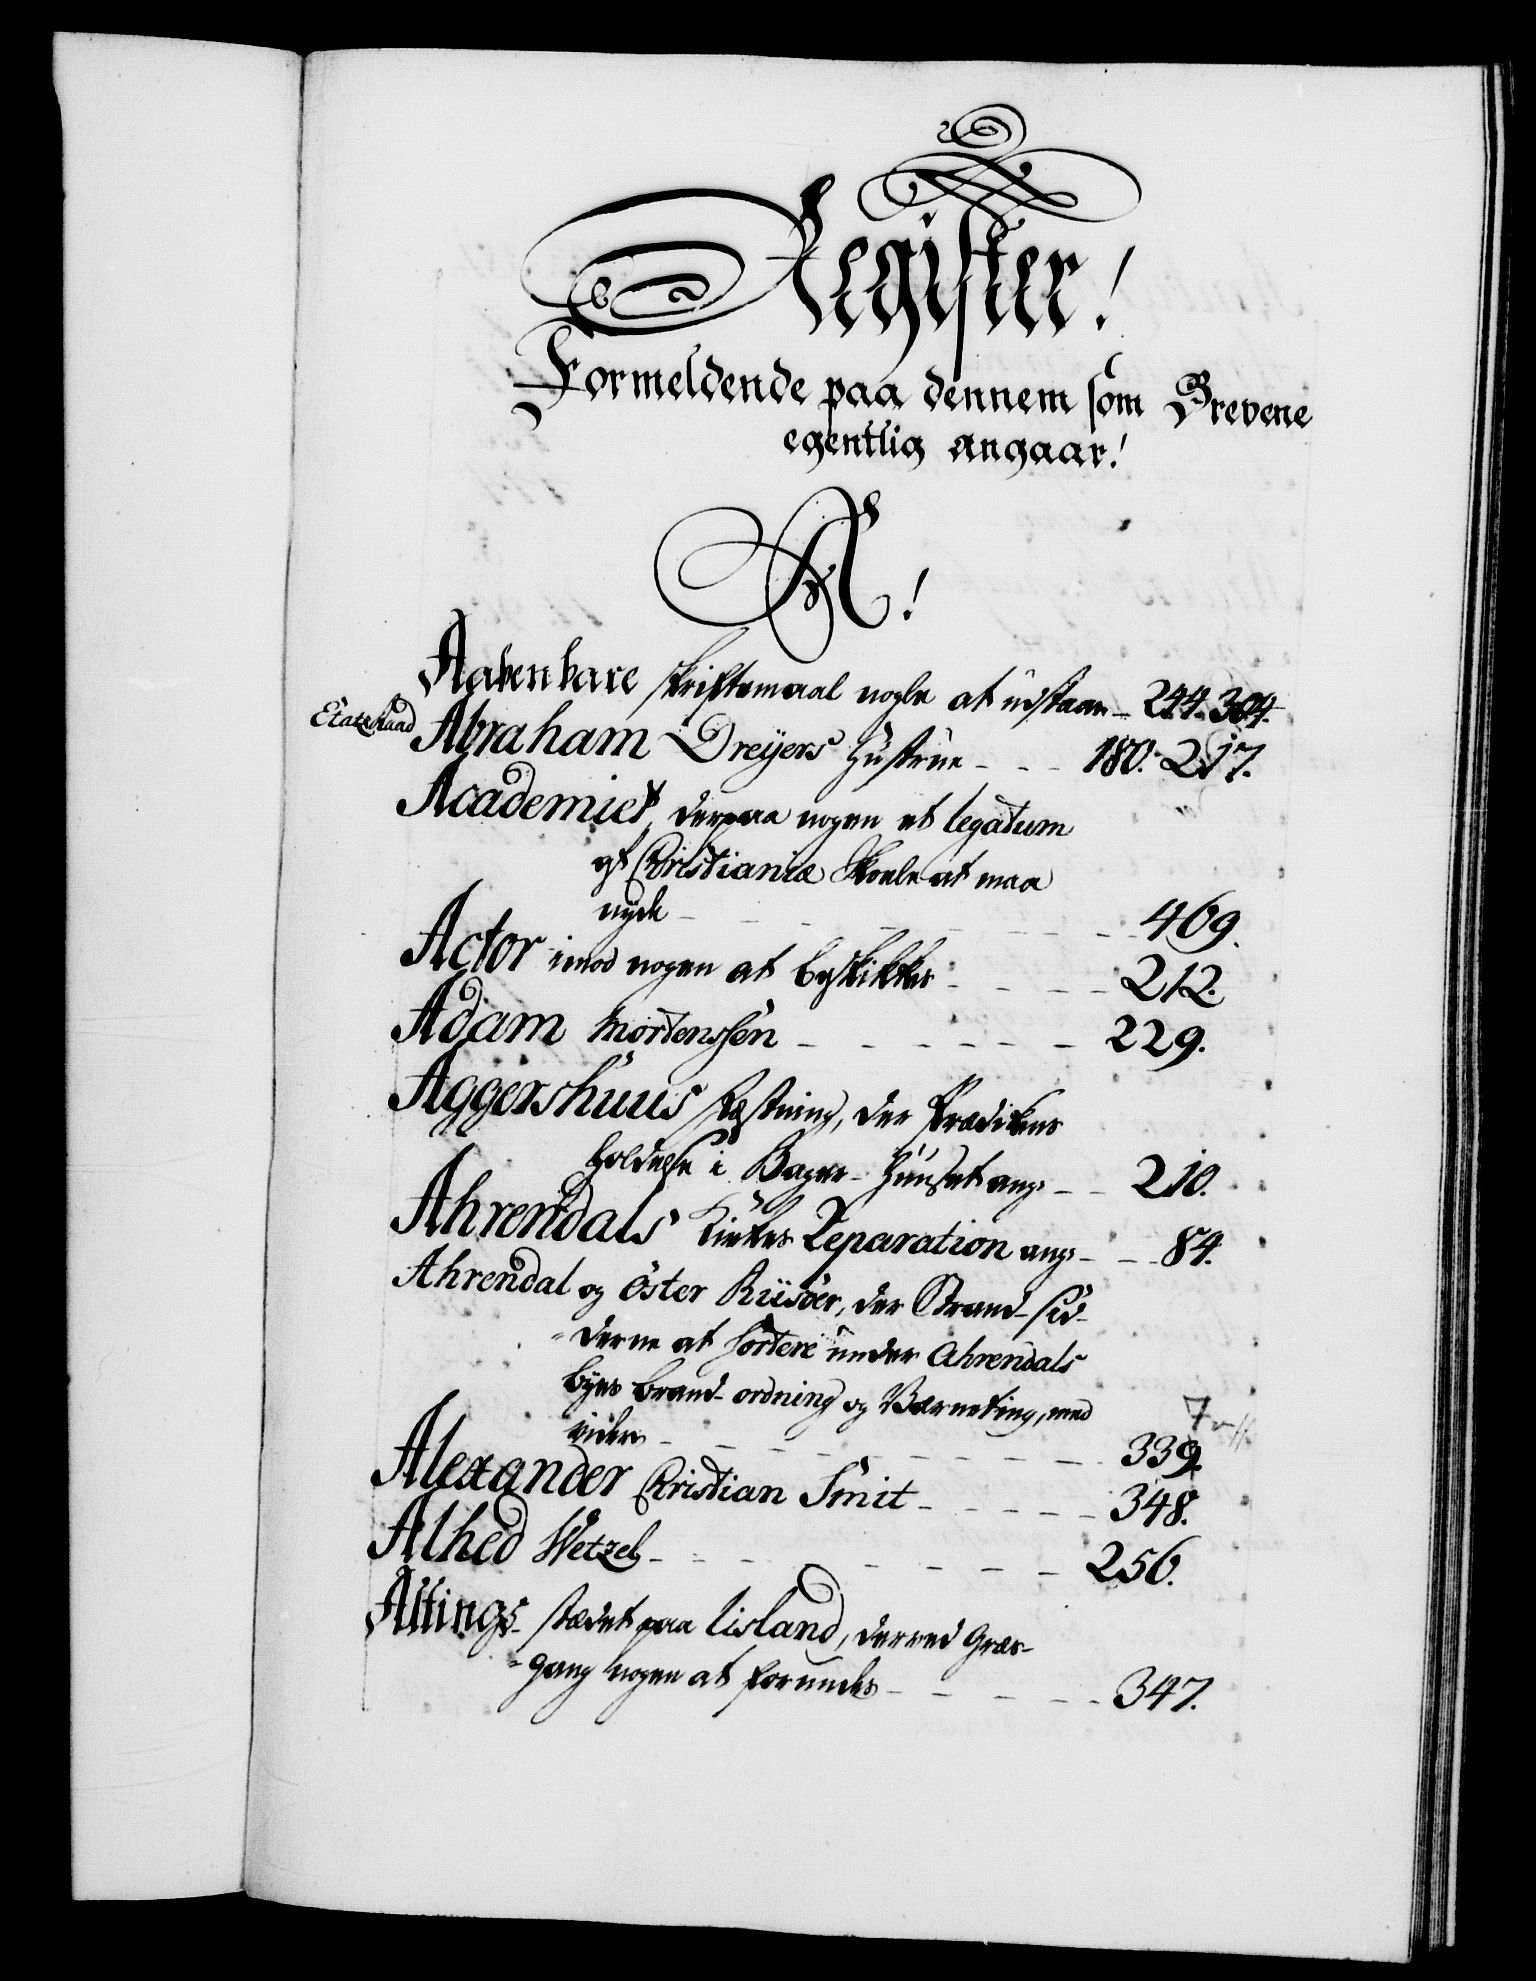 Register!
Formeldende paa dennem som Brevene
egentlig angaar!
A!
Aabenbare skriftemaal nogle at udstaae - 244. 304.
EtatsRaad Abraham Dreÿers Hustrue - - - 180. 217.
Academiet, derpaa nogen et legatum
af Christianiæ Skoele at maa
nyde - - - - - - - - 469.
Actor imod nogen at beskikkes - - - - 212.
Adam Mortenssen - - - - - - 229.
Aggershuus Fæstning, der Prædikens
holdelse i Bager-Huuset ang: - - 210.
Ahrendals Kirkes Reparation ang: - - - 84.
Ahrendal og Öster Riisöer, der Strand-sid-
-derne at sortere under Ahrendals
byes brand-ordning og Værneting, med
videre - - - - - - - - 339.
Alexander Christian Smit - - - - - 348.
Alhed Wetzel - - - - - - - - 256.
Altings-stædet paa Iisland, derved Græs-
-gang nogen at forundes - - - - - 347.